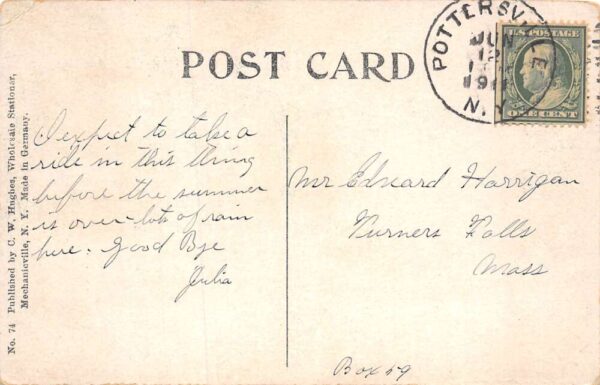 POST CARD
POTTERSVILLE
JUN
12
191
N.Y.
U.S. POSTAGE
ONE CENT
No. 74 Published by C. W. Hughes, Wholesale Stationer,
Mechanicville, N. Y. Made in Germany.
I expect to take a
ride in this thing
before the summer
is over - lots of rain
here. Good Bye
Julia
Mr Edward Harrigan
Turners Falls
Mass
Box 59